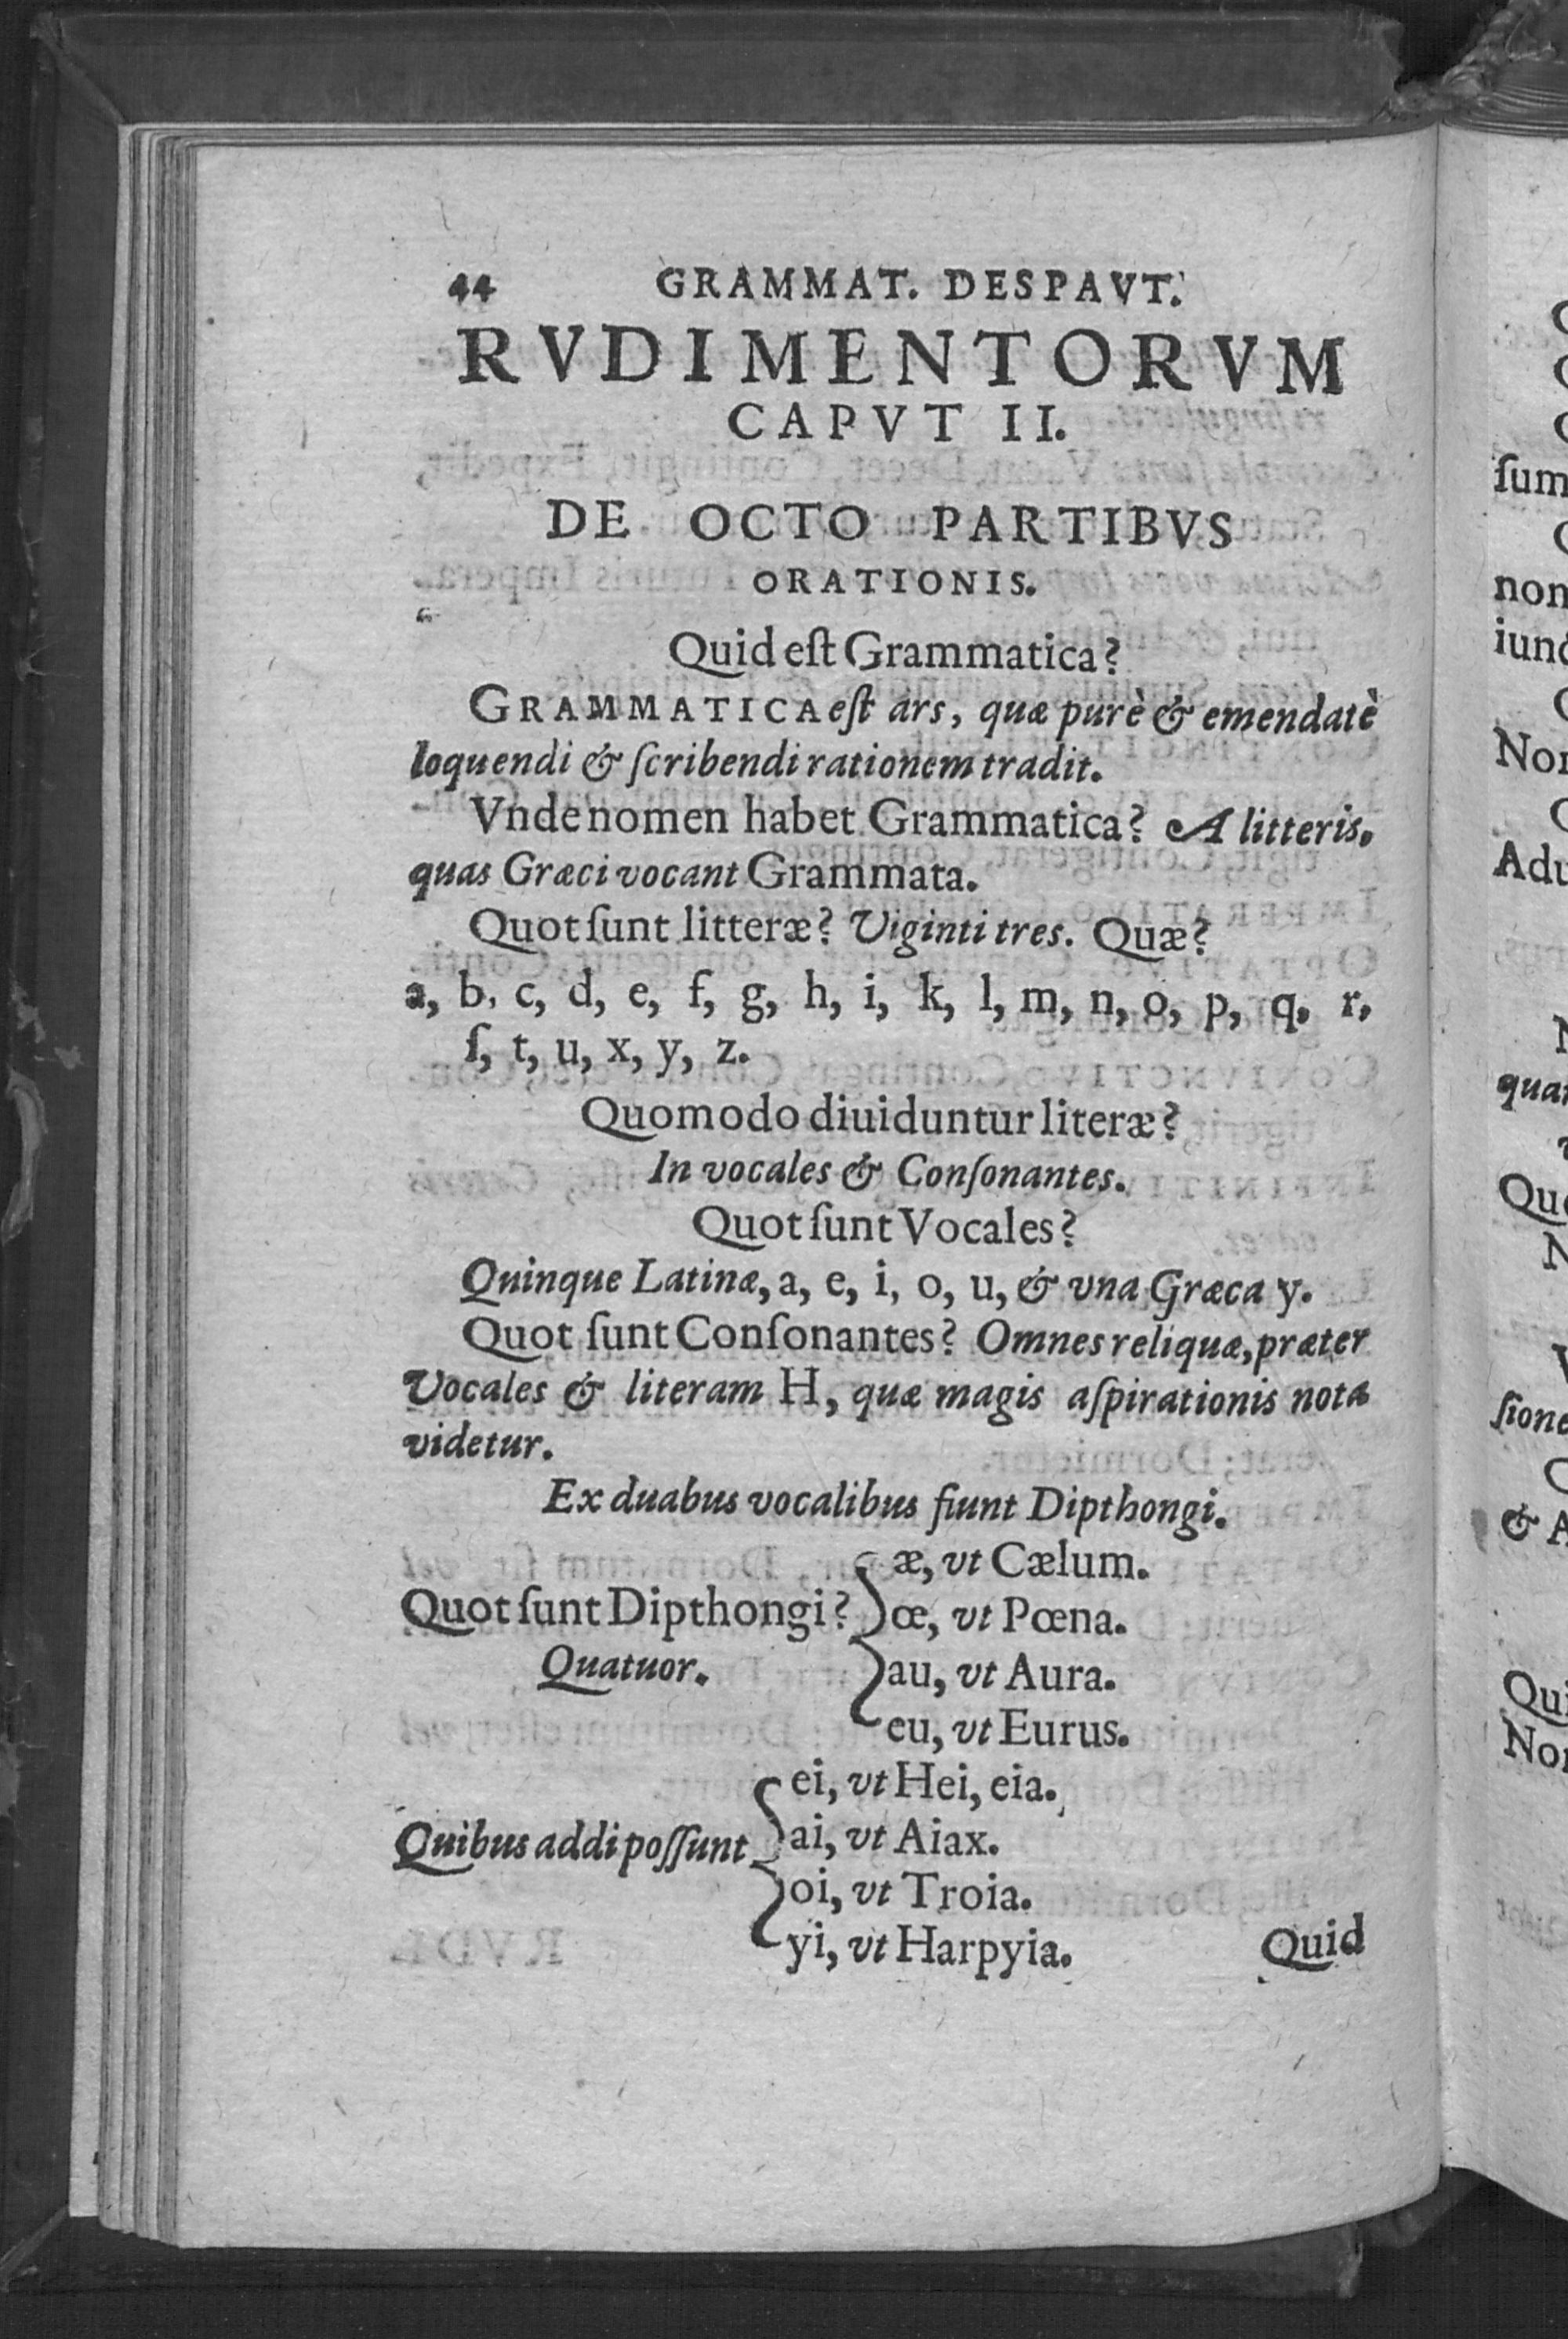 44 GRAMMAT. DESPAVT.
RVDIMENTORVM
CAPVT II.
DE OCTO PARTIBVS
ORATIONIS.
Quid eſt Grammatica?
GRAMMATICA eſt ars, quæ purè & emendatè
loquendi & ſcribendi rationem tradit.
Vnde nomen habet Grammatica? A litteris,
quas Græci vocant Grammata.
Quot ſunt litteræ? Viginti tres. Quæ?
a, b, c, d, e, f, g, h, i, k, l, m, n, o, p, q, r,
ſ, t, u, x, y, z.
Quomodo diuiduntur literæ?
In vocales & Conſonantes.
Quot ſunt Vocales?
Quinque Latinæ, a, e, i, o, u, & vna Græca y.
Quot ſunt Conſonantes? Omnes reliquæ, præter
Vocales & literam H, quæ magis aſpirationis nota
videtur.
Ex duabus vocalibus fiunt Dipthongi.
æ, vt Cælum.
Quot ſunt Dipthongi? œ, vt Pœna.
Quatuor. au, vt Aura.
eu, vt Eurus.
ei, vt Hei, eia.
Quibus addi poſſunt ai, vt Aiax.
oi, vt Troia.
yi, vt Harpyia.
Quid
ſum
non
quar
& A